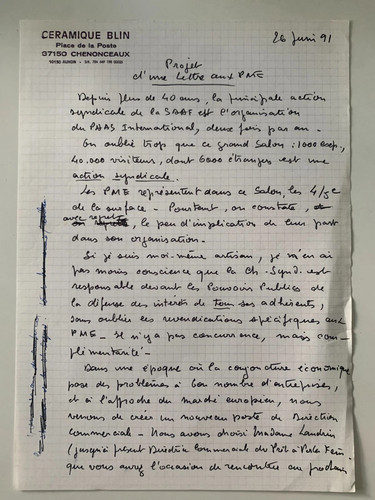 CERAMIQUE BLIN
Place de la Poste
37150 CHENONCEAUX
26 Juin 91
Projet
d'une Lettre aux PME
Depuis plus de 40 ans, la principale action
syndicale de la est l'organisation
du International, deux fois par an.
On oublie trop que ce grand Salon : 1000 exp.,
40.000 visiteurs, dont 6000 étrangers est une
action syndicale.
Les PME représentent dans ce Salon, les 4/5e
de la surface - Pourtant, on constate,
avec regret
le peu d'implication de leur part
dans son organisation.
Si je suis moi-même artisan, je n'en ai
pas moins conscience que la Ch. Synd. est
responsable devant les Pouvoirs Publics de
la défense des intérêts de tous ses adhérents,
sans oublier les revendications spécifiques aux
PME - Il n'y a pas concurrence, mais com-
plémentarité -
Dans une époque où la conjoncture économique
pose des problèmes à bon nombre d'entreprises,
et à l'approche du marché européen, nous
venons de créer un nouveau poste de Direction
commerciale - Nous avons choisi Madame Landrin
(jusqu'à présent Directrice Commerciale du
que vous avez l'occasion de rencontrer au prochain